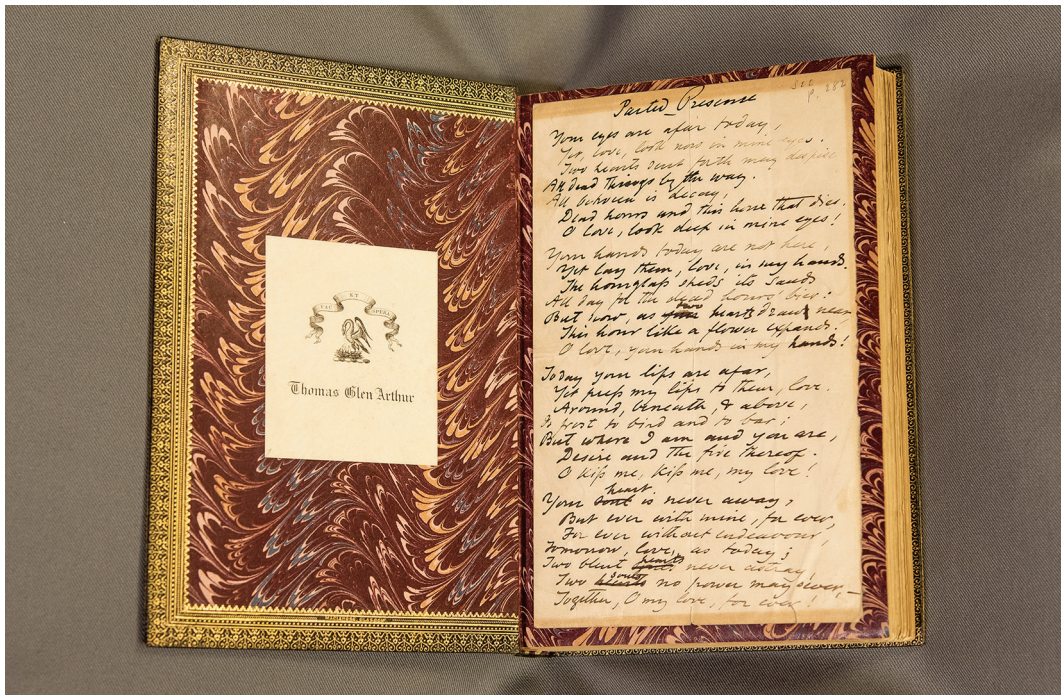 FAC ET SPERA
Thomas Glen Arthur
See
Parted Presence
Your eyes are afar today,
Yet, love, look now in mine eyes.
Two hearts sent forth may despise
All dead things by the way.
All between is decay,
Dead hours and this hour that dies.
O love, look deep in mine eyes!
Your hands today are not here,
Yet lay them, love, in my hands.
The hourglass sheds its sands
All day for the dead hours' bier:
But now, as two hearts draw near
This hour like a flower expands.
O love, your hands in my hands!
Today your lips are afar,
Yet press my lips to them, love.
Around, beneath, & above,
Is frost to bind and to bar;
But where I am and you are,
Desire and the fire thereof.
O kiss me, kiss me, my love!
Your soul heart is never away,
But ever with mine, for ever,
For ever without endeavour,
Tomorrow, love, as today;
Two blent hearts never astray,
Two hearts souls no power may sever,
Together, O my love, for ever!